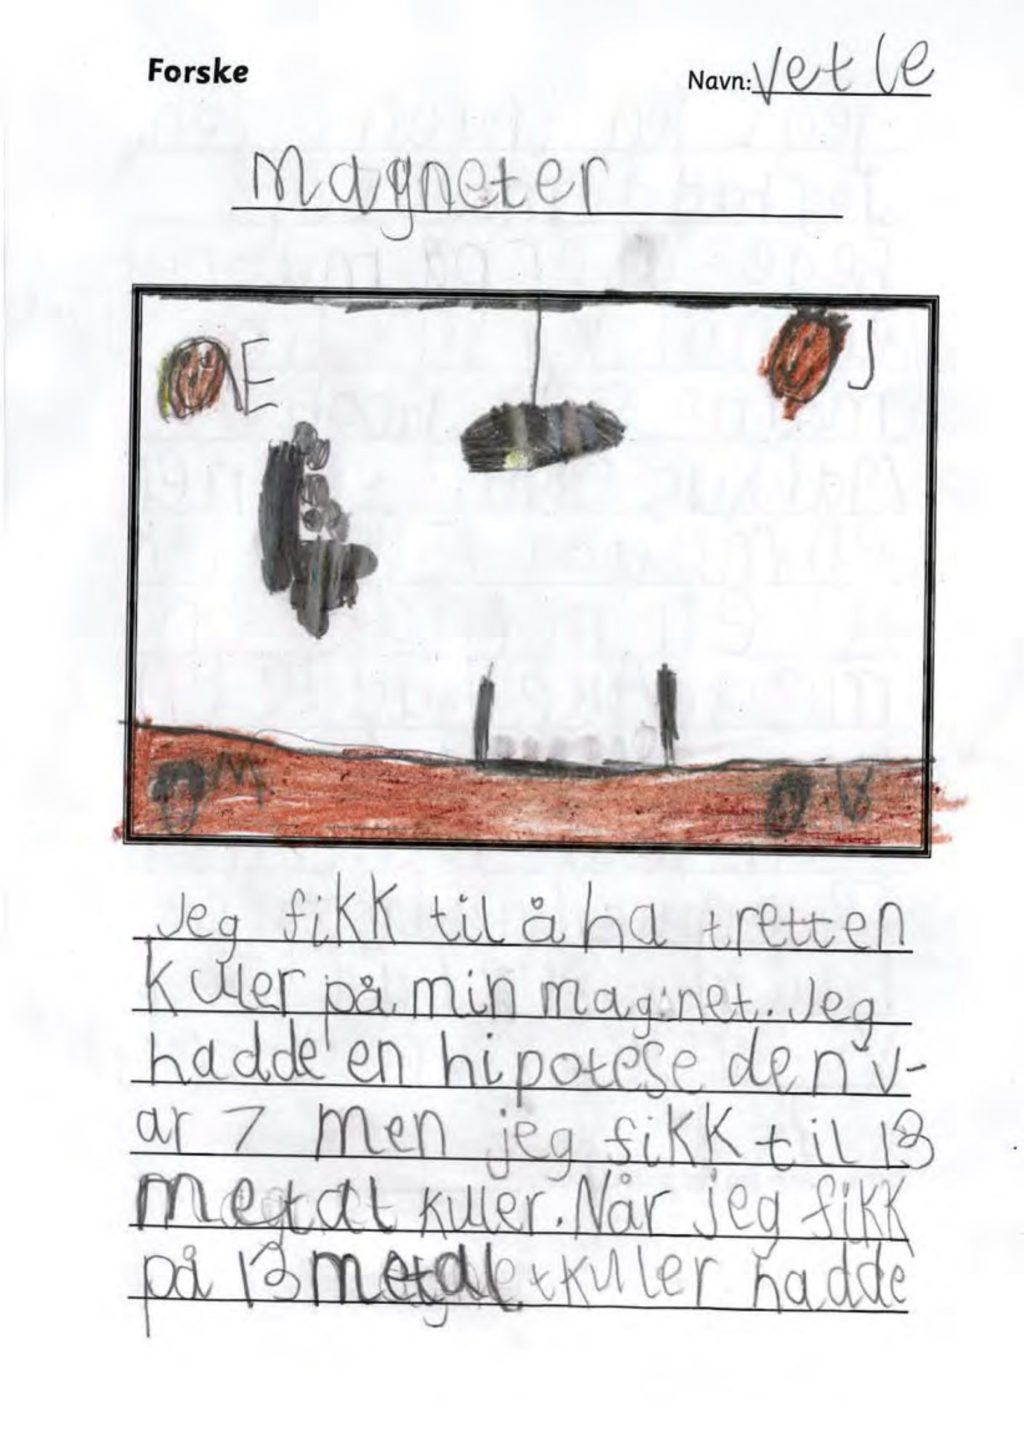 Forske
Navn: Vetle
magneter
E
J
M
V
Jeg fikk til å ha tretten
kuler på min magnet. Jeg
hadde en hipotese den v-
ar 7 men jeg fikk til 13
metal kuler. Når jeg fikk
på 13 metal kuler hadde